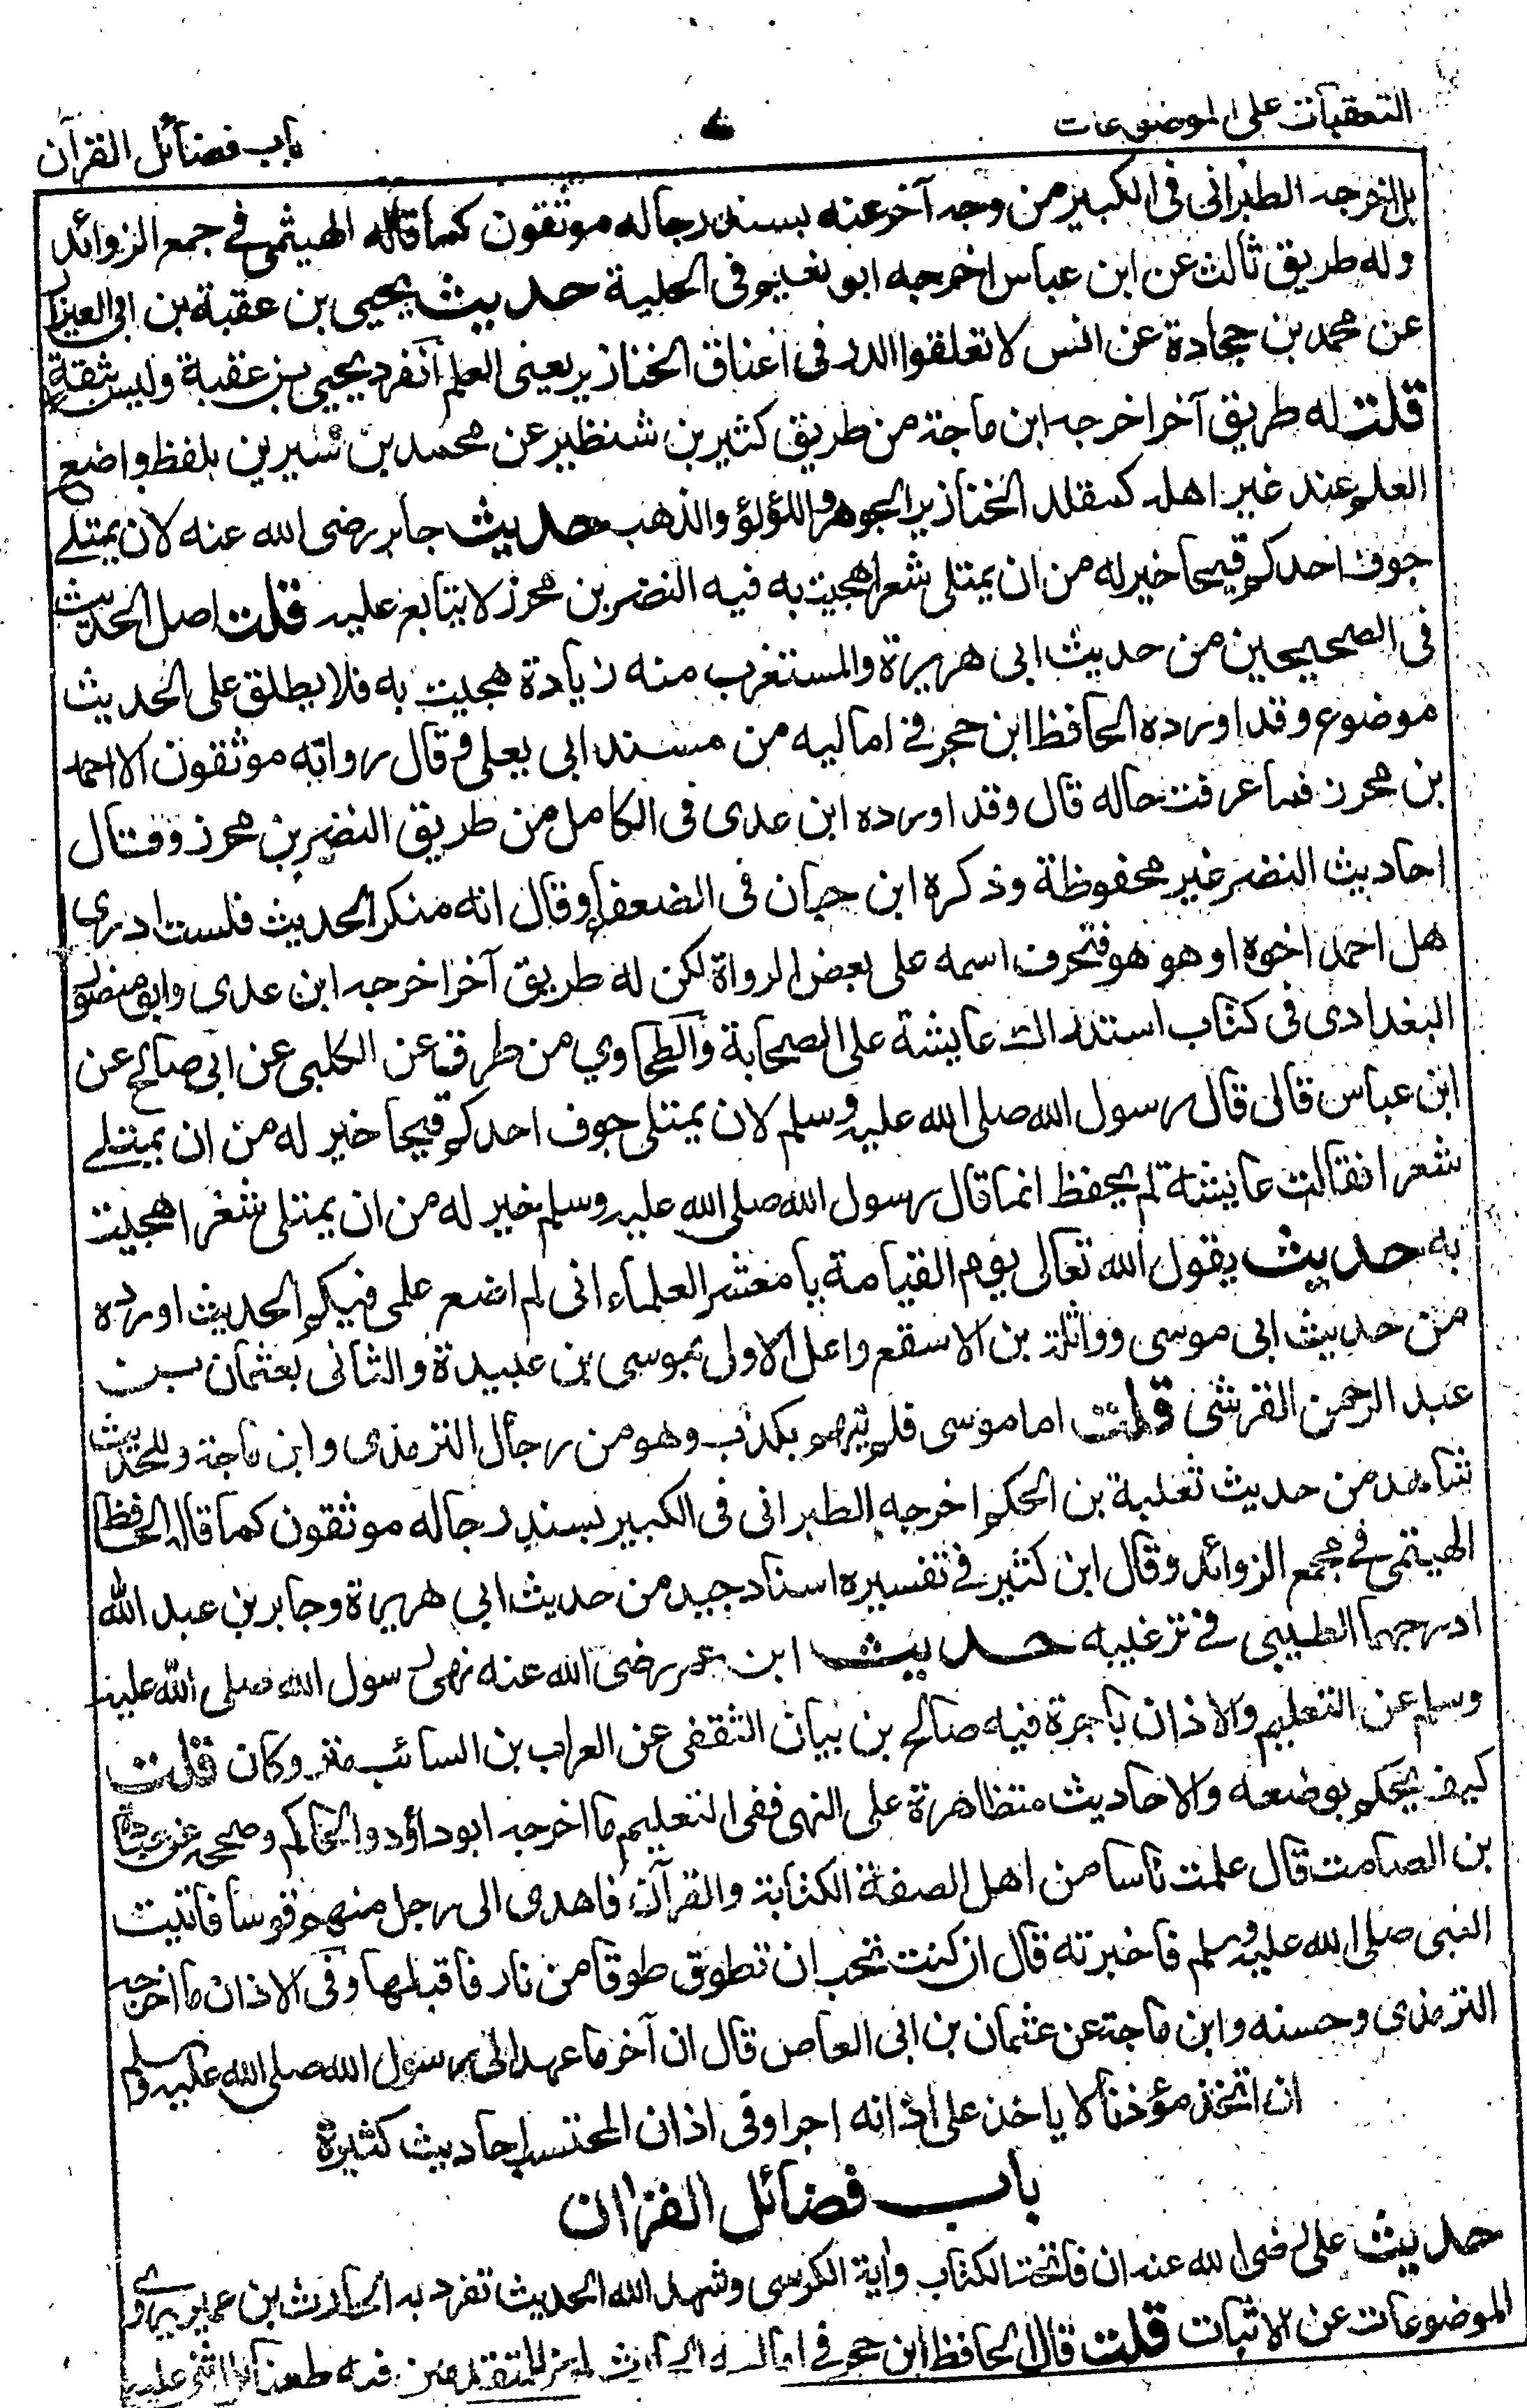 التعقبات على الموضوعات
باب فضائل القرآن
بل اخرجه الطبرانى فى الكبير من وجه آخر عنه بسند رجاله موثقون كما قاله الهيثمى فى جمع الزوائد
وله طريق ثالث عن ابن عباس اخرجه ابو نعيم فى الحلية حديث يحيى بن عقبة بن ابى العيزار
عن محمد بن جحادة عن انس لا تعلقوا الدر فى اعناق الخنازير يعنى العلم انفرد يحيى بن عقبة وليس بثقة
قلت له طريق آخر اخرجه ابن ماجة من طريق كثير بن شنظير عن محمد بن سيرين بلفظ واضع
العلم عند غير اهله كمقلد الخنازير الجوهر واللؤلؤ والذهب حديث جابر رضى الله عنه لان يمتلى
جوف احدكم قيحا خير له من ان يمتلى شعرا هجيت به فيه النضر بن محرز لا يتابع عليه قلت اصل الحديث
فى الصحيحين من حديث ابى هريرة والمستغرب منه زيادة هجيت به فلا يطلق على الحديث
موضوع وقد اورده الحافظ ابن حجر فى اماليه من مسند ابى يعلى وقال رواته موثقون الا احمد
بن محرز فما عرفت حاله قال وقد اورده ابن عدى فى الكامل من طريق النضر بن محرز وقال
احاديث النضر غير محفوظة وذكره ابن حبان فى الضعفاء وقال انه منكر الحديث فلست ادرى
هل احمد اخوه او هو هو فتحرف اسمه على بعض الرواة لكن له طريق آخر اخرجه ابن عدى وابو منصور
البغدادى فى كتاب استدراك عايشة على الصحابة والطحاوي من طرق عن الكلبى عن ابى صالح عن
ابن عباس قال قال رسول الله صلى الله عليه وسلم لان يمتلى جوف احدكم قيحا خير له من ان يمتلى
شعرا فقالت عايشة لم يحفظ انما قال رسول الله صلى الله عليه وسلم خير له من ان يمتلى شعرا هجيت
به حديث يقول الله تعالى يوم القيامة يا معشر العلماء انى لم اضع علمى فيكم الحديث اورده
من حديث ابى موسى وواثلة بن الاسقع واعل الاولى بموسى بن عبيدة والثانى بعثمان بن
عبد الرحمن القرشى قلت اما موسى فلم يتهم بكذب وهو من رجال الترمذى وابن ماجة وللحديث
شاهد من حديث ثعلبة بن الحكم اخرجه الطبرانى فى الكبير بسند رجاله موثقون كما قاله الحافظ
الهيثمى فى مجمع الزوائد وقال ابن كثير فى تفسيره اسناد جيد من حديث ابي هريرة وجابر بن عبد الله
ادرجهما الطيبى فى ترغيبه حديث ابن عمر رضى الله عنه نهى رسول الله صلى الله عليه
وسلم عن التعليم والاذان باجرة فيه صالح بن بيان الثقفى عن الفرات بن السائب متروكان قلت
كيف يحكم بوضعه والاحاديث متظاهرة على النهى ففى التعليم ما اخرجه ابو داؤد والحاكم وصححه عن عبادة
بن الصامت قال علمت ناسا من اهل الصفة الكتابة والقرآن فاهدى الى رجل منهم قوسا فاتيت
النبى صلى الله عليه وسلم فاخبرته قال ان كنت تحب ان تطوق طوقا من نار فاقبلها وفى الاذان ما اخرجه
الترمذى وحسنه وابن ماجة عن عثمان بن ابى العاص قال ان آخر ما عهد الى رسول الله صلى الله عليه وسلم
ان اتخذ مؤذنا لا ياخذ على اذانه اجرا وفى اذان المحتسب احاديث كثيرة
باب فضائل القران
حديث على رضى الله عنه ان فاتحة الكتاب واية الكرسى وشهد الله الحديث تفرد به الحارث بن عمير يروى
الموضوعات عن الاثبات قلت قال الحافظ ابن حجر فى اماليه الحارث لم نر للمتقدمين فيه طعنا